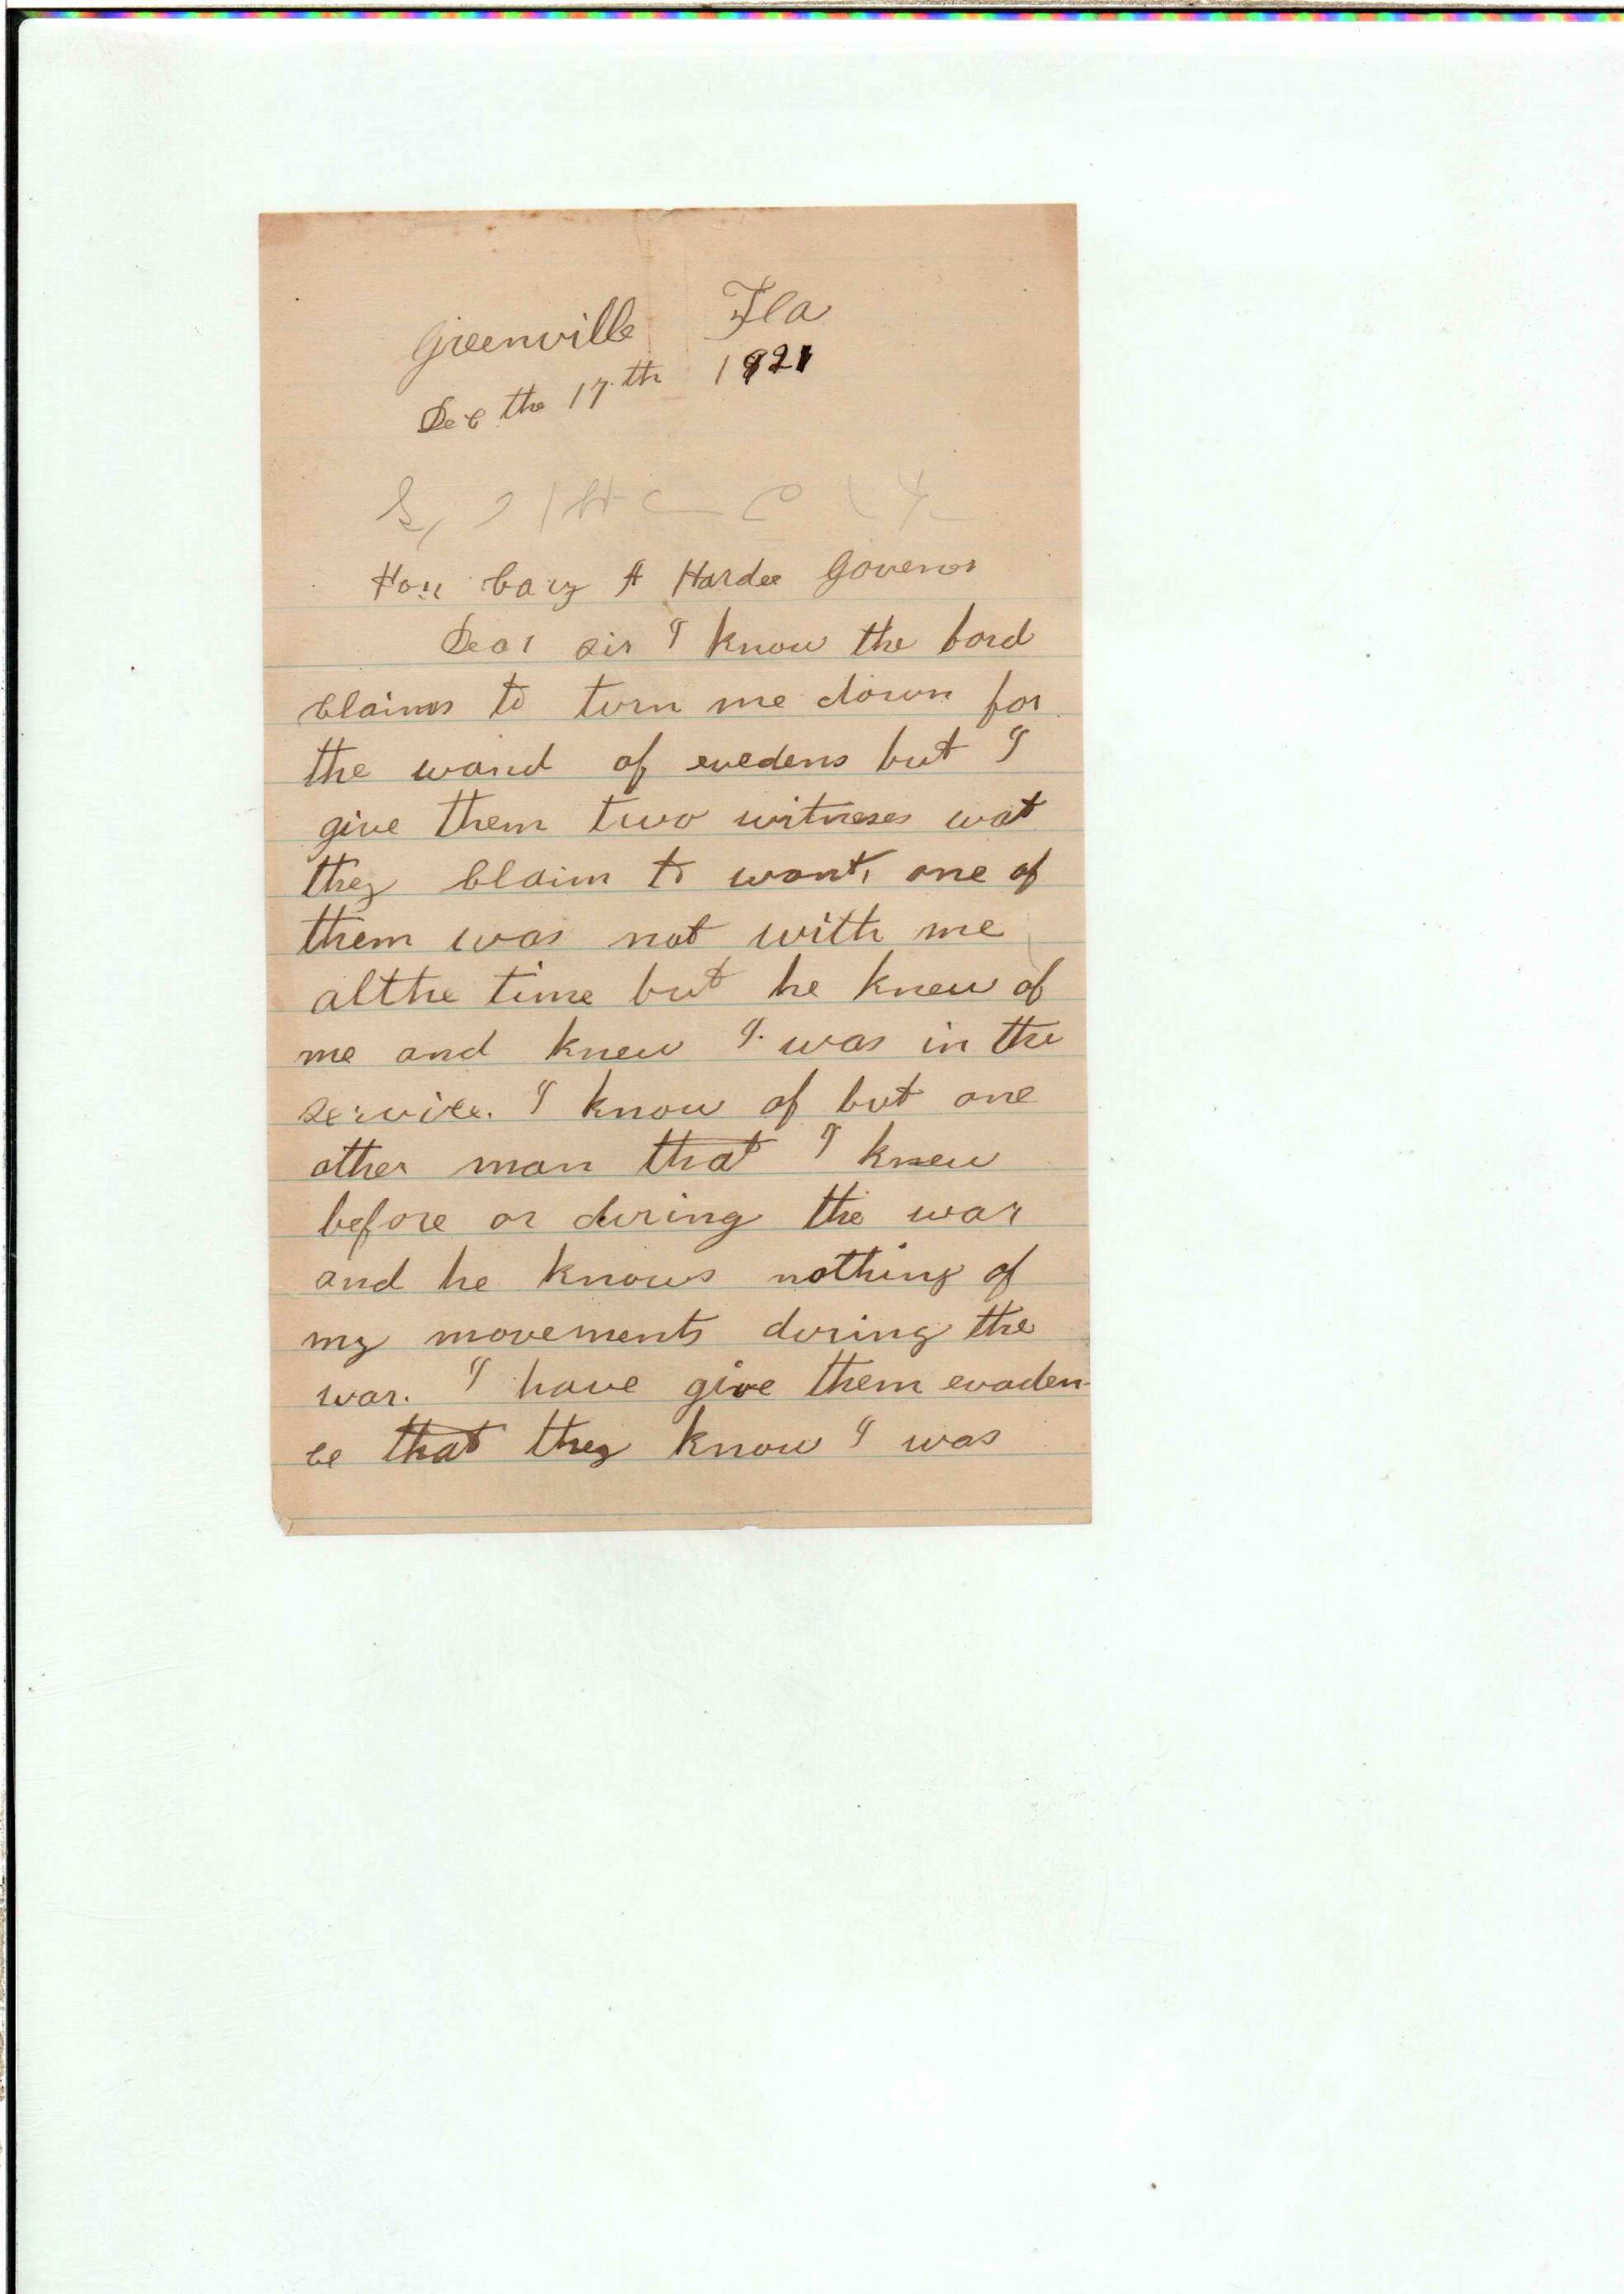 Greenville Fla
Dec the 17.th 1921
Hon Cary A Hardee Govenor
Dear sir I know the bord
claims to turn me down for
the wand of evedens but I
give them two witneses wat
they claim to want, one of
them was not with me
althe time but he knew of
me and knew I was in the
service. I know of but one
other man that I knew
before or during the war
and he knows nothing of
my movements during the
war. I have give them evaden
ce that they know I was